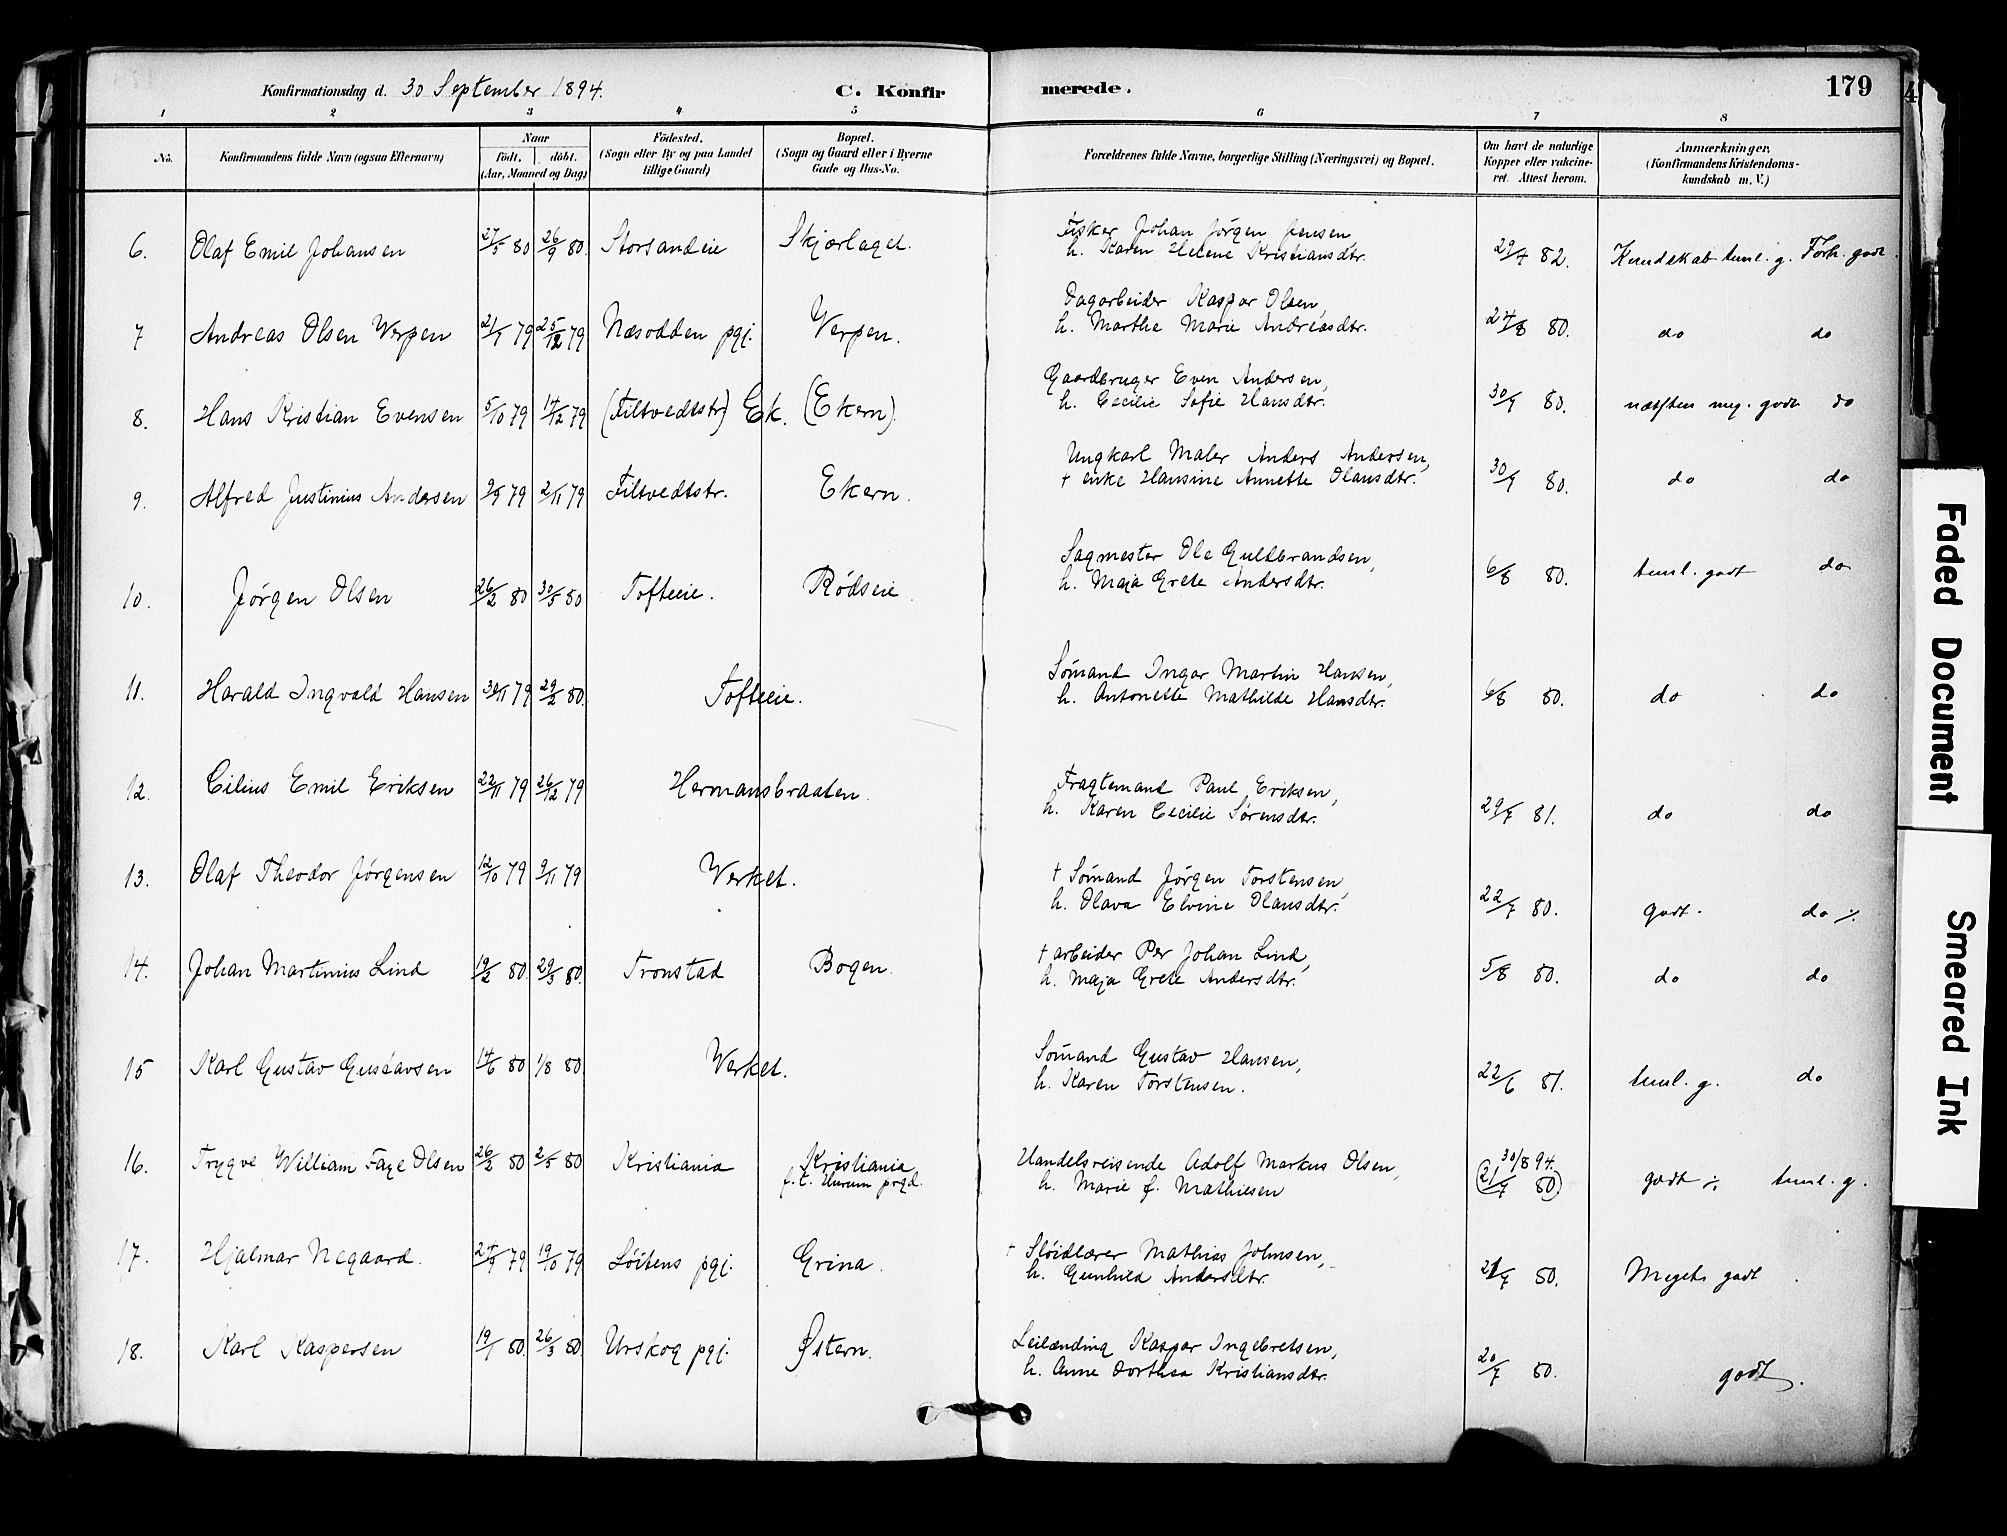 Konfirmationsdag d. 30 September 1894. C. Konfir merede. 179
1 2 3 4 5 6 7 8
No. Konfirmandens fulde Navn (ogsaa Efternavn) Naar født. døbt. (Aar, Maaned og Dag) Fødested. (Sogn eller By og paa Landet tillige Gaard) Bopæl. (Sogn og Gaard eller i Byerne Gade og Hus-No. Forældrenes fulde Navne, borgerlige Stilling (Næringsvei) og Bopæl. Om havt de naturlige Kopper eller vakcineret. Attest herom. Anmærkninger. (Konfirmandens Kristendomskundskab m. V.)
6. Olaf Emil Johansen 27/5 80 26/9 80. Storsandeie Skjærlaget. Fisker Johan Jörgen Jensen
h. Karen Helene Kristiansdtr. 29/7 82. Kundskab teml. g. Forh. godt.
7 Andreas Olsen Verpen 21/1 79 25/12 79 Næsodden pgj. Verpen. Dagarbeider Kaspar Olsen,
h. Marthe Marie Andreasdtr. 24/8 80. do do
8. Hans Kristian Evensen 5/10 79 14/12 79 (Filtvedtstr) Ek. (Ekern). Gaardbruger Even Andersen,
h. Cecilie Sofie Hansdtr. 30/7 80. næsten meg. godt do
9. Alfred Justinius Andersen 9/9 79 2/11 79 Filtvedtstr. Ekern. Ungkarl Maler Anders Andersen,
+ enke Hansine Annette Olausdtr. 30/7 80. do do
10. Jørgen Olsen 26/2 80 30/5 80 Tofteeie. Rödseie. Sagmester Ole Guldbrandsen,
h. Maja Grete Andersdtr. 6/8 80. teml. godt do
11. Harald Ingvald Hansen 30/11 79 29/2 80. Tofteeie. Sömand Ingar Martin Hansen,
h. Antonette Mathilde Hansdtr. 6/8 80. do do
12. Cilius Emil Eriksen 22/11 79 26/12 79 Hermansbraaten. Fragtemand Paul Eriksen,
h. Karen Cecilie Sørensdtr. 29/7 81. do do
13. Olaf Theodor Jørgensen 12/10 79 9/11 79 Verket. + Sömand Jørgen Torstensen,
h. Olava Elvine Olausdtr. 22/7 80. godt. do ./.
14. Johan Martinius Lind 19/2 80. 29/3 80. Tronstad Bogen. + arbeider Per Johan Lind,
h. Maja Grete Andersdtr. 5/8 80. do do
15 Karl Gustav Gustavsen 14/6 80 1/8 80 Verket. Sömand Gustav Hansen,
h. Karen Torstensen. 22/6 81. teml. g. do
16. Trygve William Faye Olsen 26/2 80 2/5 80 Kristiania Kristiania
f. t. Hurum prgd. Handelsreisende Adolf Markus Olsen,
h. Marie f. Mathiesen 30/8 94.
(21/7 80) godt ./. teml. g.
17. Hjalmar Negaard. 24/9 79 19/10 79 Löitens pgj. Grina. + Slöidlærer Mathias Johnsen,
h. Gunhild Andersdtr. 21/7 80. Meget godt
18. Karl Kaspersen 19/1 80. 26/3 80 Urskog pgj. Østern. Leilænding Kaspar Ingebretsen,
h. Anne Dorthea Kristiansdtr. 20/7 80. godt.
Faded Document
Smeared Ink